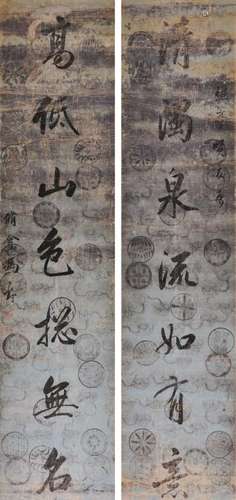 清濁泉流如有意
高低山色揔無名